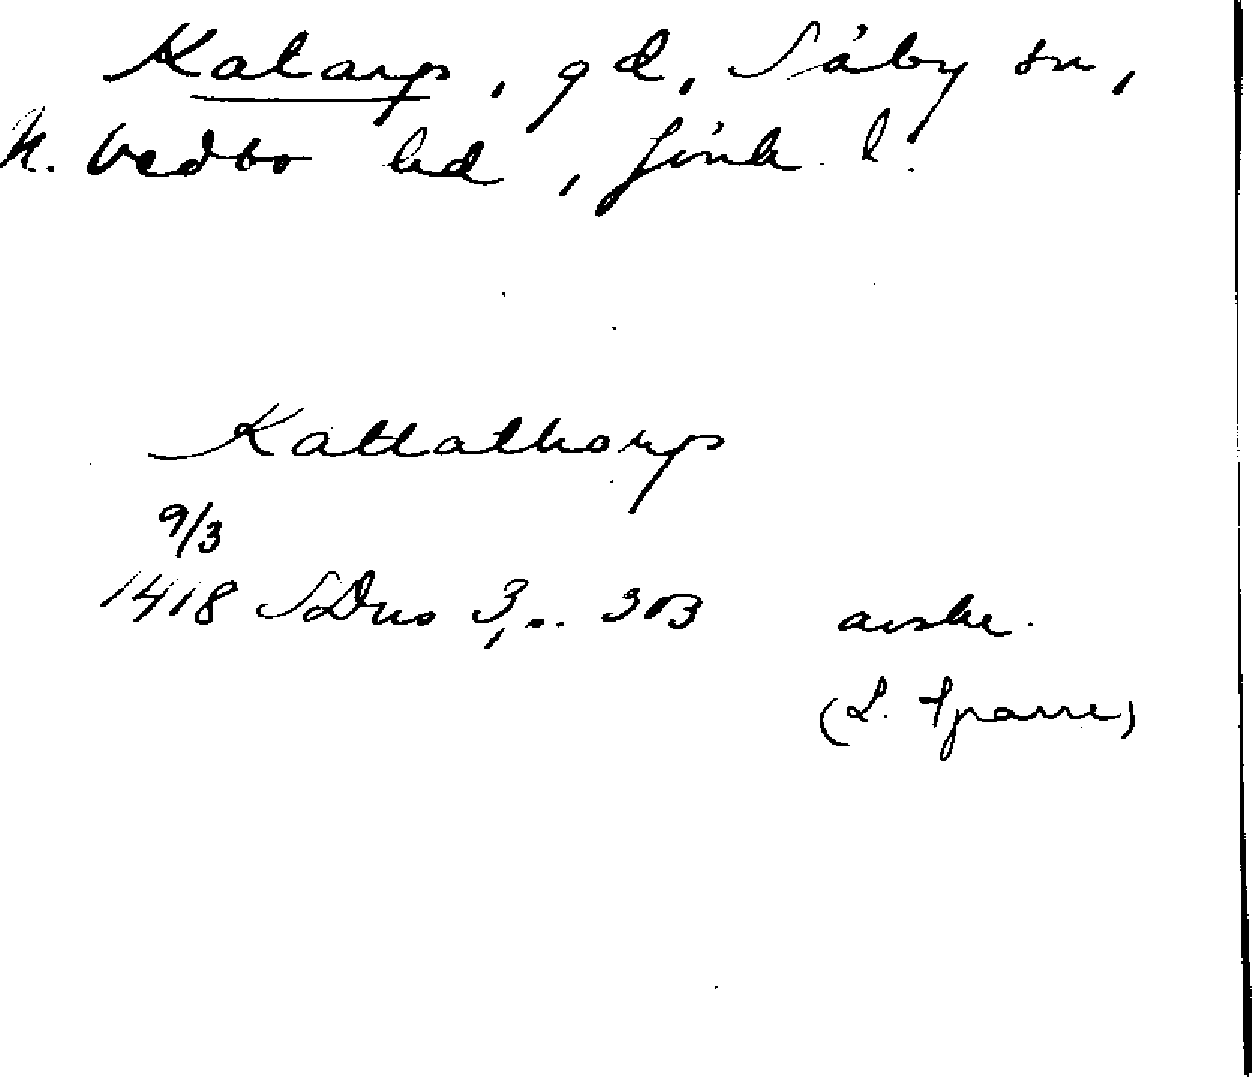 Katarp, gd, Säby sn,
N. Vedbo hd, Jönk. l.
Kattathorp
9/3
1418 SDns 3, s. 303 avskr.
(L. Sparre)